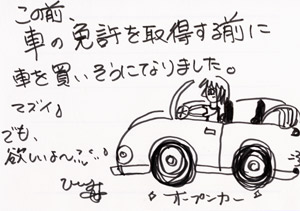 この前、
車の免許を取得する前に
車を買いそうになりました。
マズイ♪
でも、
欲しいよ〜
☆オープンカー☆